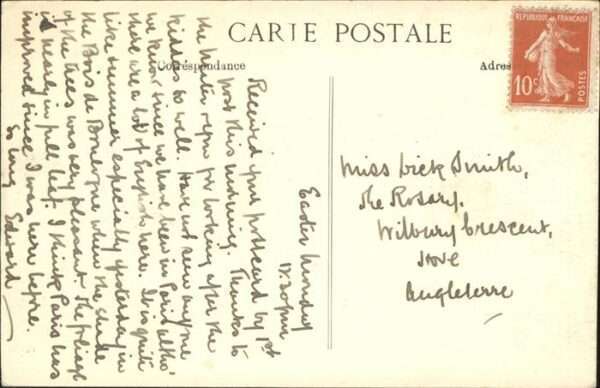 CARTE POSTALE
Correspondance
Adres
RÉPUBLIQUE FRANÇAISE
10c
POSTES
Easter Monday
12.20pm
Received your postcard by 1st
post this morning. Thanks to
the Mater & you for looking after the
kiddies so well. Have not seen anyone
we know since we have been in Paris altho'
there are a lot of English here. It is quite
like summer especially yesterday in
the Bois de Boulogne when the shade
of the trees was very pleasant. The foliage
is nearly in full leaf. I think Paris has
improved since I was here before.
So long Edward
Miss Dick Smith,
The Rosary.
Wilbury Crescent,
Hove
Angleterre